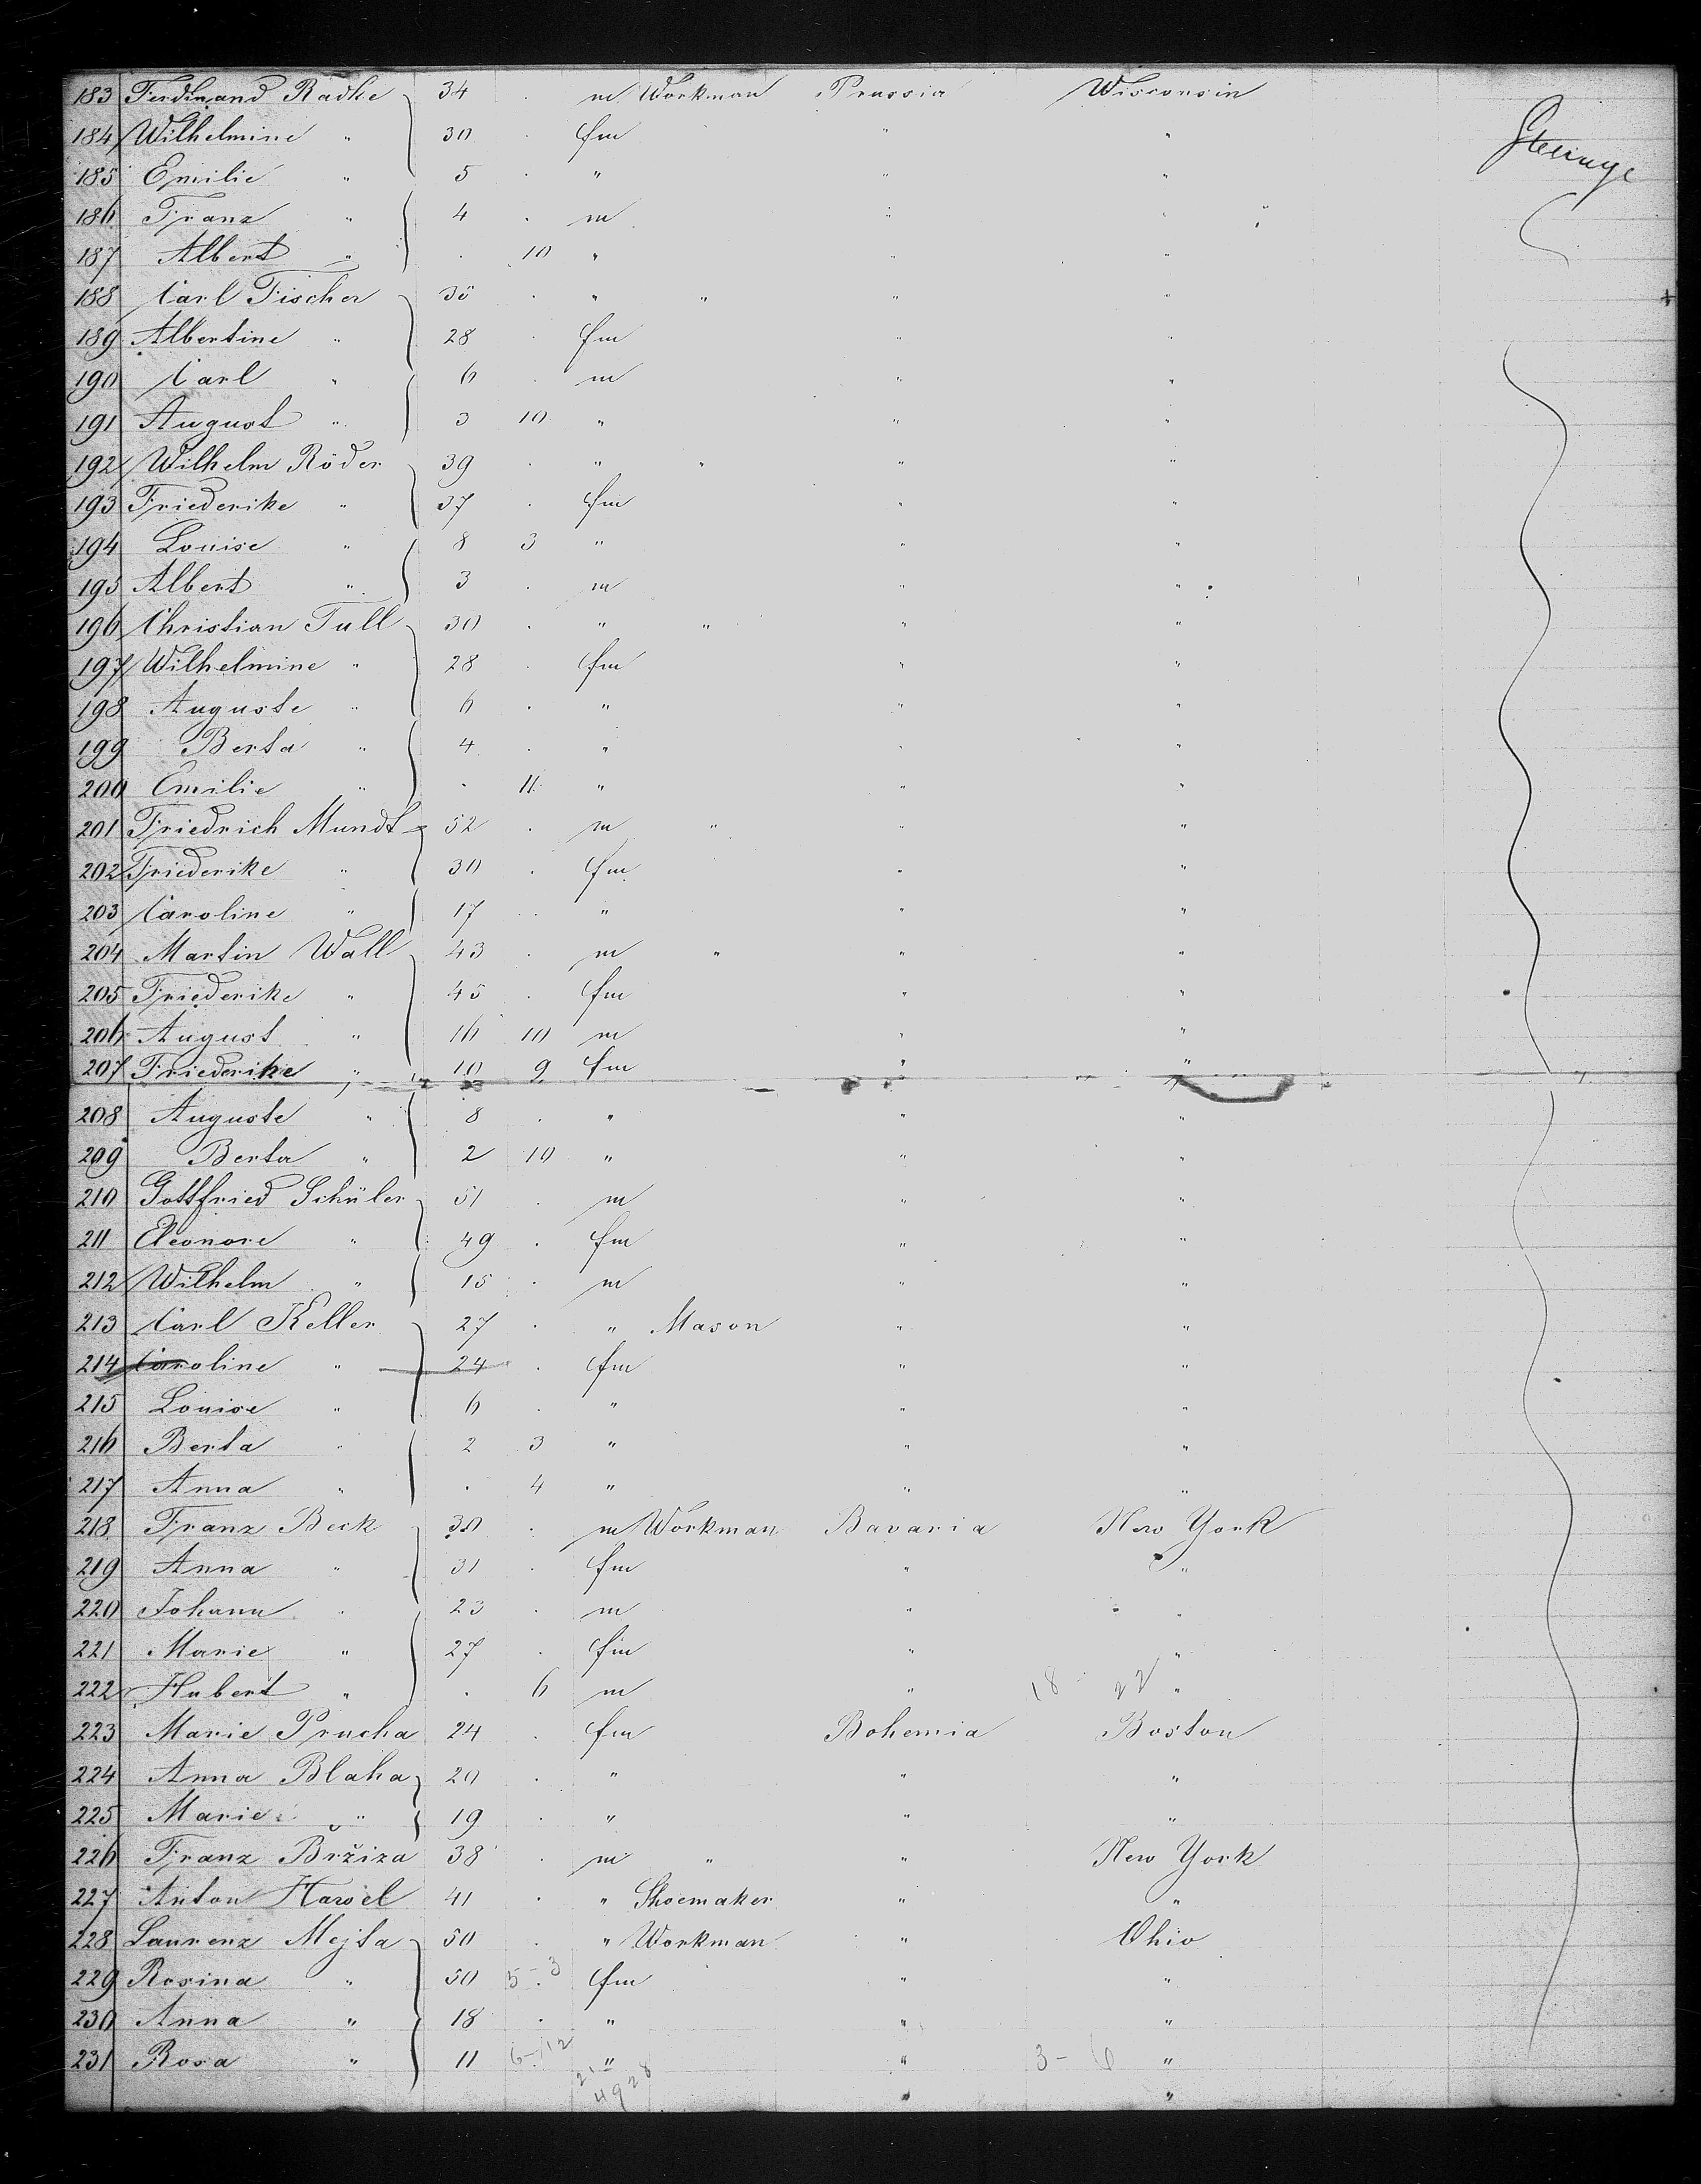 183 Ferdinand Radke 34 . m Workman Prussia Wisconsin
184 Wilhelmine " 30 . fm " "
Steerage
185 Emilie " 5 . " " "
186 Franz " 4 . m " "
187 Albert " . 10 " " "
188 Carl Fischer 35 . " " " "
189 Albertine " 28 . fm " "
190 Carl " 6 . m " "
191 August " 3 10 " " "
192 Wilhelm Röder 39 . " " " "
193 Friederike " 37 . fm " "
194 Louise " 8 3 " " "
195 Albert " 3 . m " "
196 Christian Tull 30 . " " " "
197 Wilhelmine " 28 . fm " "
198 Auguste " 6 . " " "
199 Berta " 4 . " " "
200 Emilie " . 11 " " "
201 Friedrich Mundt 52 . m " " "
202 Friederike " 30 . fm " "
203 Caroline " 17 . " " "
204 Martin Wall 43 . m " " "
205 Friederike " 45 . fm " "
206 August " 16 10 m " "
207 Friederike " 10 9 fm " "
208 Auguste " 8 . " " "
209 Berta " 2 10 " " "
210 Gottfried Schüler 51 . m " "
211 Eleonore " 49 . fm " "
212 Wilhelm " 15 . m " "
213 Carl Keller 27 . " Mason " "
214 Caroline " 24 . fm " "
215 Louise " 6 . " " "
216 Berta " 2 3 " " "
217 Anna " . 4 " " "
218 Franz Beck 30 . m Workman Bavaria New York
219 Anna " 31 . fm " "
220 Johann " 23 . m " "
221 Marie " 27 . fm " "
222 Hubert " . 6 m " 18 22 "
223 Marie Prucha 24 . fm Bohemia Boston
224 Anna Blaha 20 . " " "
225 Marie " 19 . " " "
226 Franz Bržiza 38 . m " " New York
227 Anton Hawel 41 . " Shoemaker " "
228 Laurenz Mejta 50 . " Workman " Ohio
229 Rosina " 50 5-3 fm " "
230 Anna " 18 . " " "
231 Rosa " 11 6-12 " " 3-6 "
21 4928 " "